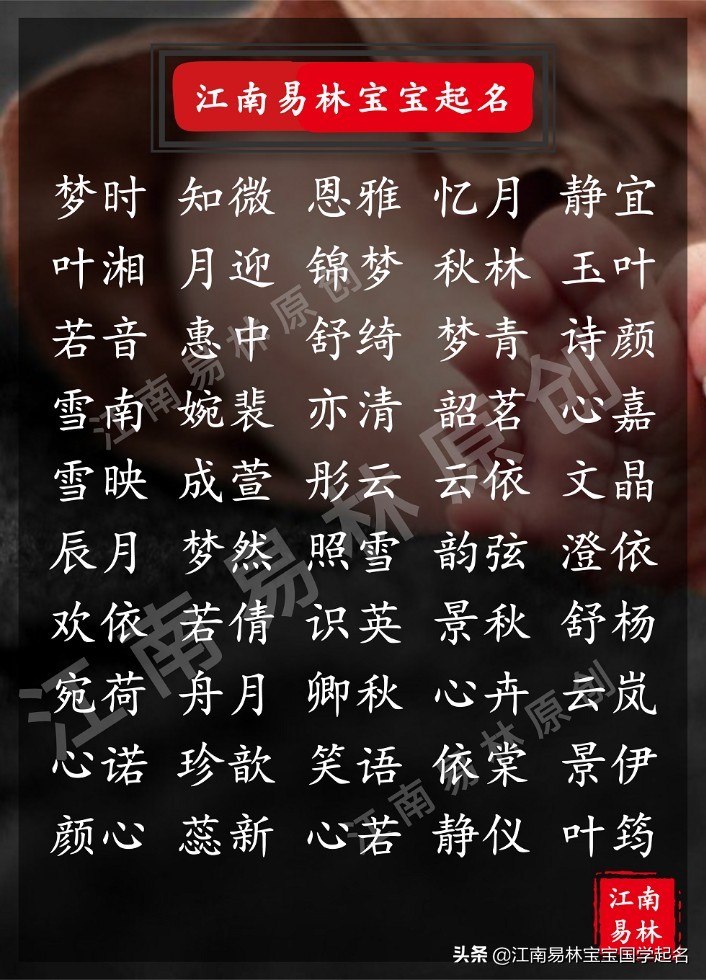 江南易林宝宝起名
梦时 知微 恩雅 忆月 静宜
叶湘 月迎 锦梦 秋林 玉叶
若音 惠中 舒绮 梦青 诗颜
雪南 婉裴 亦清 韶茗 心嘉
雪映 成萱 彤云 云依 文晶
辰月 梦然 照雪 韵弦 澄依
欢依 若倩 识英 景秋 舒杨
宛荷 舟月 卿秋 心卉 云岚
心诺 珍歆 笑语 依棠 景伊
颜心 蕊新 心若 静仪 叶筠
江南易林原创
江南易林原创
江南易林原创
江南
易林
头条 @江南易林宝宝国学起名